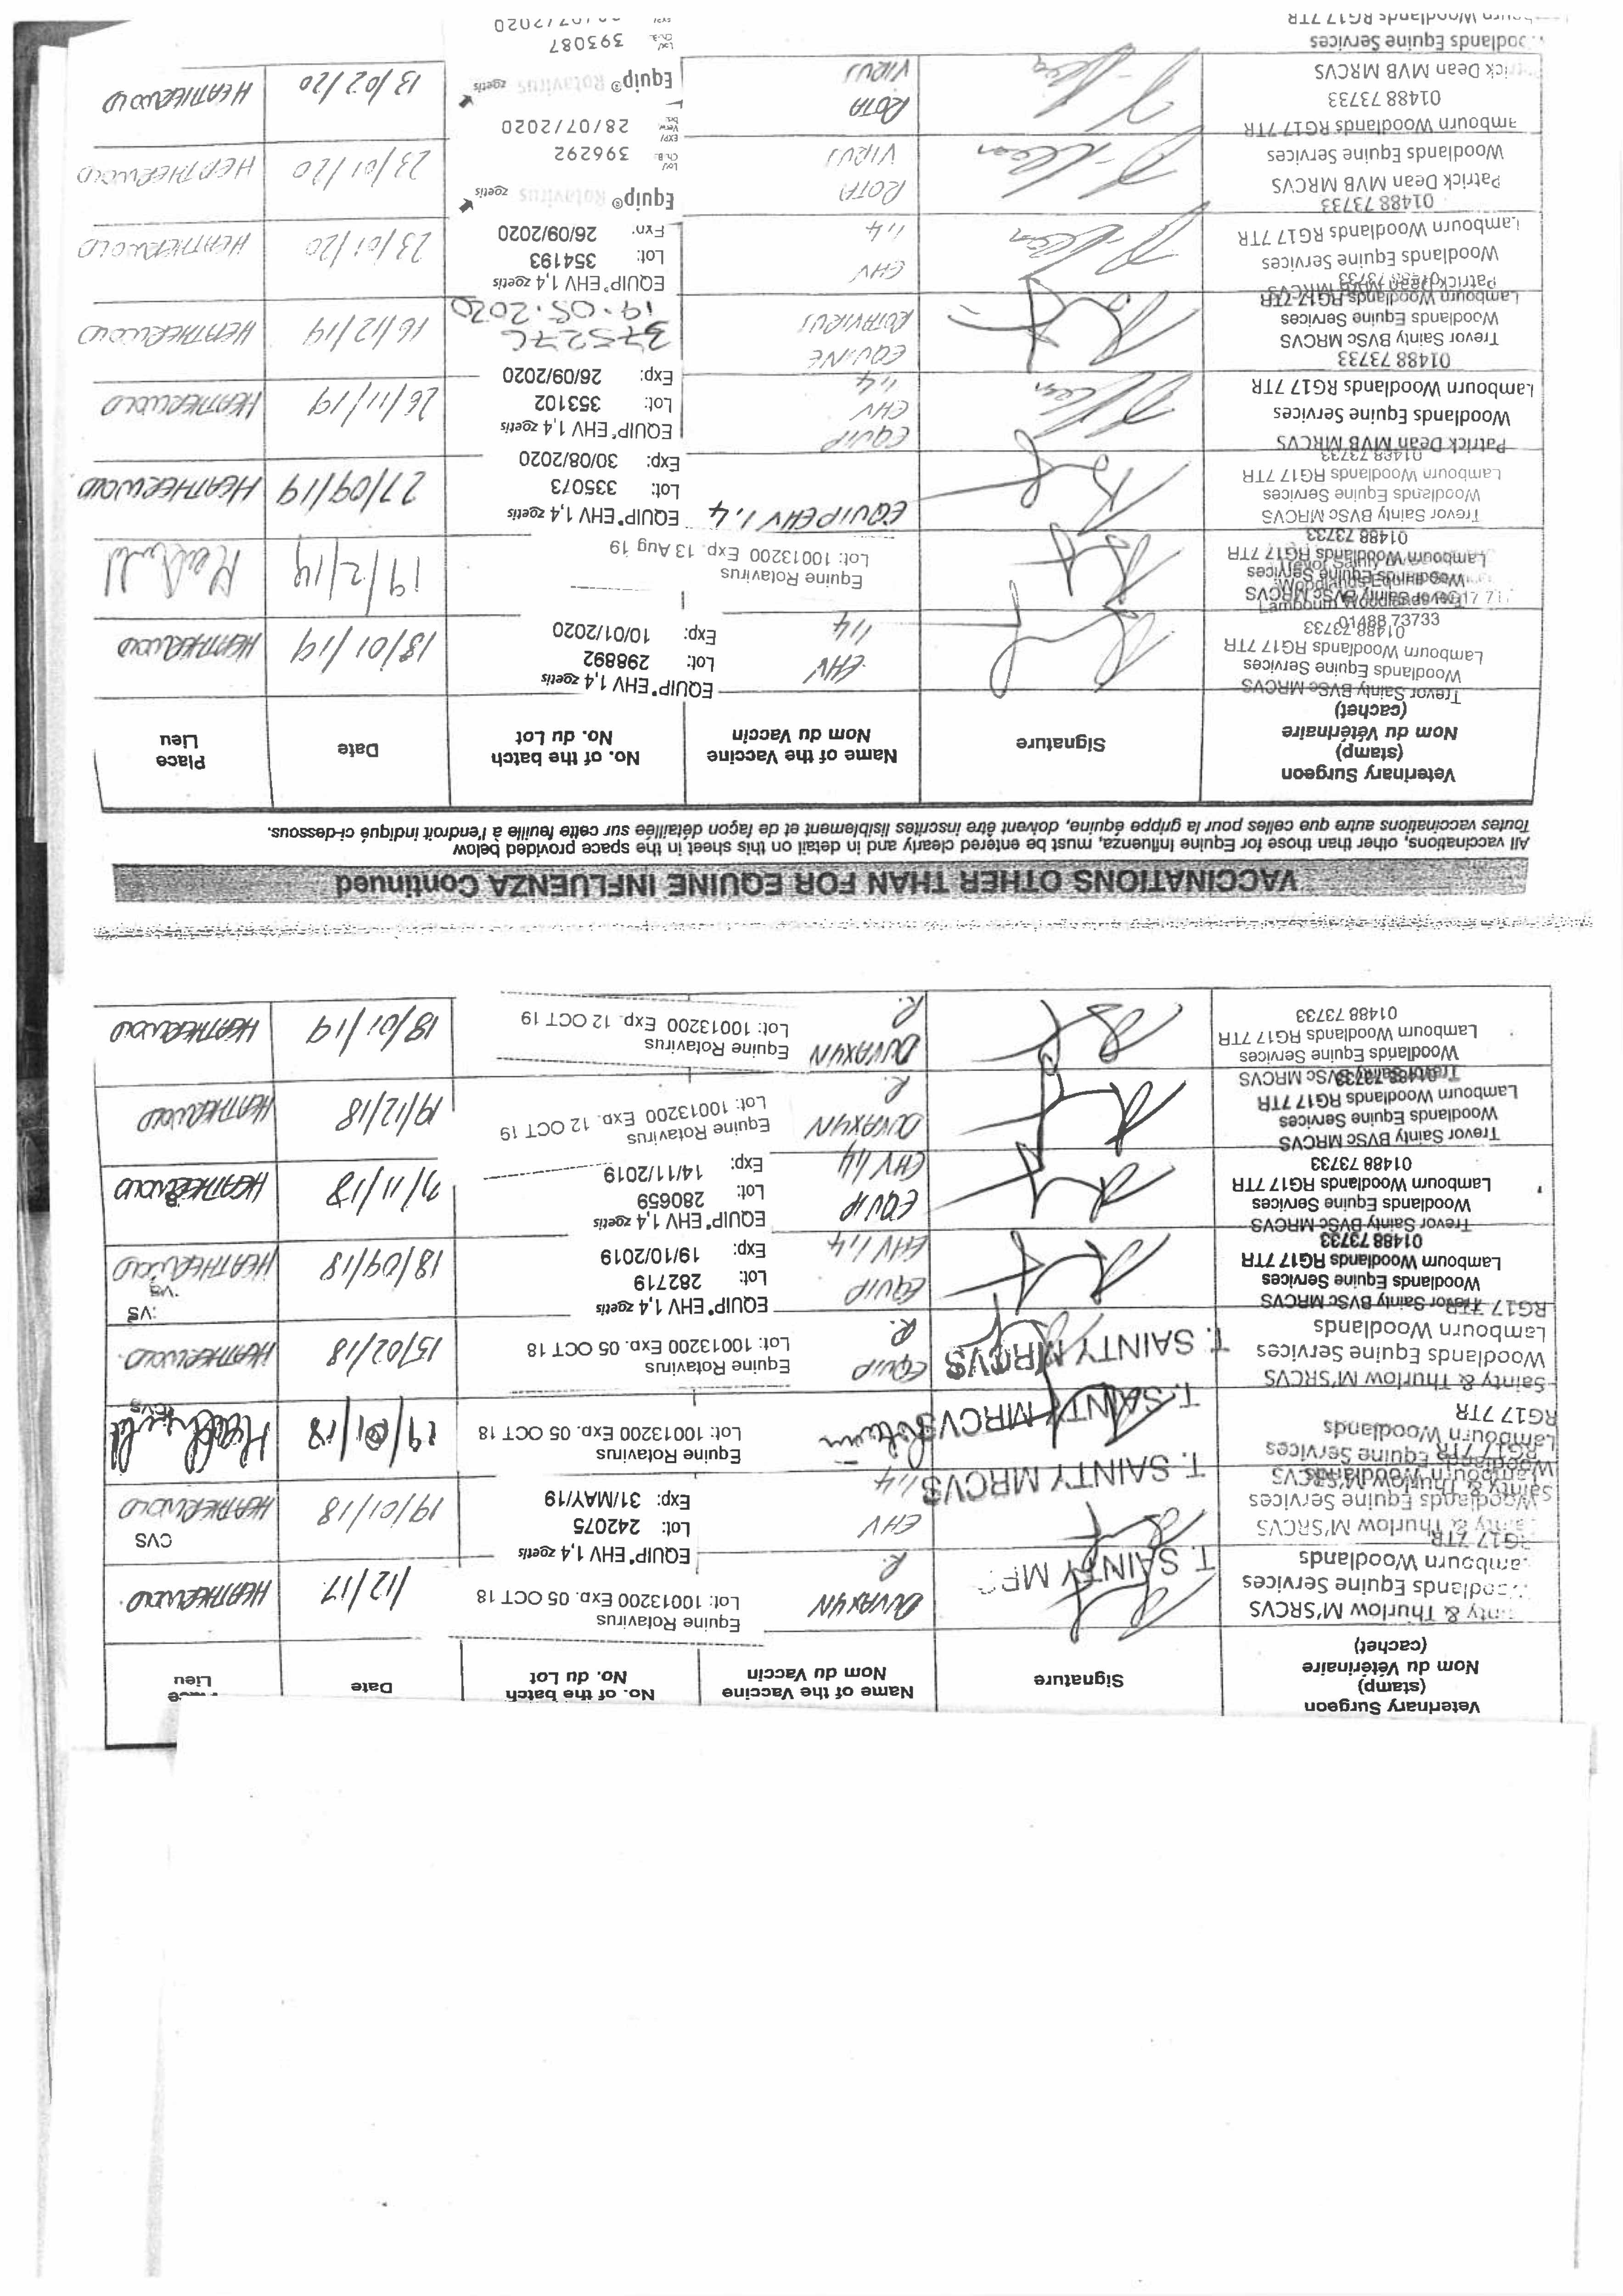 Veterinary Surgeon
(stamp)
Nom du Vétérinaire
(cachet)
Signature
Name of the Vaccine
Nom du Vaccin
No. of the batch
No. du Lot
Date
Lieu
& Thurlow M'SRCVS
Woodlands Equine Services
Lambourn Woodlands
RG17 7TR
T. SAINTY
DUVAXYN
R.
Equine Rotavirus
Lot: 10013200 Exp. 05 OCT 18
/12/17
HEATHERWOLD
Thurlow M'SRCVS
Woodlands Equine Services
EHV
1,4
T. SAINTY MRCVS
EQUIP® EHV 1,4 zoetis
Lot: 242075
Exp: 31/MAY/19
19/01/18
CVS
HEATHERWOLD
Sainty & Thurlow M'SRCVS
Woodlands Equine Services
Lambourn Woodlands
RG17 7TR
T. SAINTY MRCVS
Equine Rotavirus
Lot: 10013200 Exp. 05 OCT 18
19/01/18
Sainty & Thurlow M'SRCVS
Woodlands Equine Services
Lambourn Woodlands
RG17 7TR
T. SAINTY MRCVS
EQUIP
R.
Equine Rotavirus
Lot: 10013200 Exp. 05 OCT 18
15/02/18
HEATHERWOLD
Trevor Sainty BVSc MRCVS
Woodlands Equine Services
Lambourn Woodlands RG17 7TR
01488 73733
EQUIP
EHV 1,4
EQUIP® EHV 1,4 zoetis
Lot: 282719
Exp: 19/10/2019
18/09/18
HEATHERWOLD
Trevor Sainty BVSc MRCVS
Woodlands Equine Services
Lambourn Woodlands RG17 7TR
01488 73733
EQUIP
EHV 1,4
EQUIP® EHV 1,4 zoetis
Lot: 280659
Exp: 14/11/2019
/11/18
HEATHERWOLD
Trevor Sainty BVSc MRCVS
Woodlands Equine Services
Lambourn Woodlands RG17 7TR
01488 73733
DUVAXYN
R.
Equine Rotavirus
Lot: 10013200 Exp. 12 OCT 19
19/12/18
HEATHERWOLD
Trevor Sainty BVSc MRCVS
Woodlands Equine Services
Lambourn Woodlands RG17 7TR
01488 73733
DUVAXYN
R.
Equine Rotavirus
Lot: 10013200 Exp. 12 OCT 19
18/01/19
HEATHERWOLD
VACCINATIONS OTHER THAN FOR EQUINE INFLUENZA Continued
All vaccinations, other than those for Equine Influenza, must be entered clearly and in detail on this sheet in the space provided below
Toutes vaccinations autre que celles pour la grippe équine, doivent être inscrites lisiblement et de façon détaillée sur cette feuille à l'endroit indiqué ci-dessous.
Veterinary Surgeon
(stamp)
Nom du Vétérinaire
(cachet)
Signature
Name of the Vaccine
Nom du Vaccin
No. of the batch
No. du Lot
Date
Place
Lieu
Trevor Sainty BVSc MRCVS
Woodlands Equine Services
Lambourn Woodlands RG17 7TR
01488 73733
EHV
1,4
EQUIP® EHV 1,4 zoetis
Lot: 298892
Exp: 10/01/2020
18/01/19
HEATHERWOLD
Trevor Sainty BVSc MRCVS
Woodlands Equine Services
Lambourn Woodlands RG17 7TR
01488 73733
Equine Rotavirus
Lot: 10013200 Exp. 13 Aug 19
19/2/19
Trevor Sainty BVSc MRCVS
Woodlands Equine Services
Lambourn Woodlands RG17 7TR
01488 73733
EQUIP EHV 1,4
EQUIP® EHV 1,4 zoetis
Lot: 335073
Exp: 30/08/2020
27/09/19
HEATHERWOLD
Patrick Dean MVB MRCVS
Woodlands Equine Services
Lambourn Woodlands RG17 7TR
01488 73733
EQUIP
EHV
1,4
EQUIP® EHV 1,4 zoetis
Lot: 353102
Exp: 26/09/2020
26/11/19
HEATHERWOLD
Trevor Sainty BVSc MRCVS
Woodlands Equine Services
Lambourn Woodlands RG17 7TR
01488 73733
EQUINE
ROTAVIRUS
375276
19.05.2020
16/12/19
HEATHERWOLD
Patrick Dean MVB MRCVS
Woodlands Equine Services
Lambourn Woodlands RG17 7TR
01488 73733
EHV
1,4
EQUIP® EHV 1,4 zoetis
Lot: 354193
Exp: 26/09/2020
23/01/20
HEATHERWOLD
Patrick Dean MVB MRCVS
Woodlands Equine Services
Lambourn Woodlands RG17 7TR
01488 73733
ROTA
VIRUS
Equip® Rotavirus zoetis
Lot/ Ch.B.: 396292
EXP/ Verw. bis: 28/07/2020
23/01/20
HEATHERWOLD
Patrick Dean MVB MRCVS
Woodlands Equine Services
Lambourn Woodlands RG17 7TR
ROTA
VIRUS
Equip® Rotavirus zoetis
Lot/ Ch.B.: 393087
/07/2020
13/02/20
HEATHERWOLD